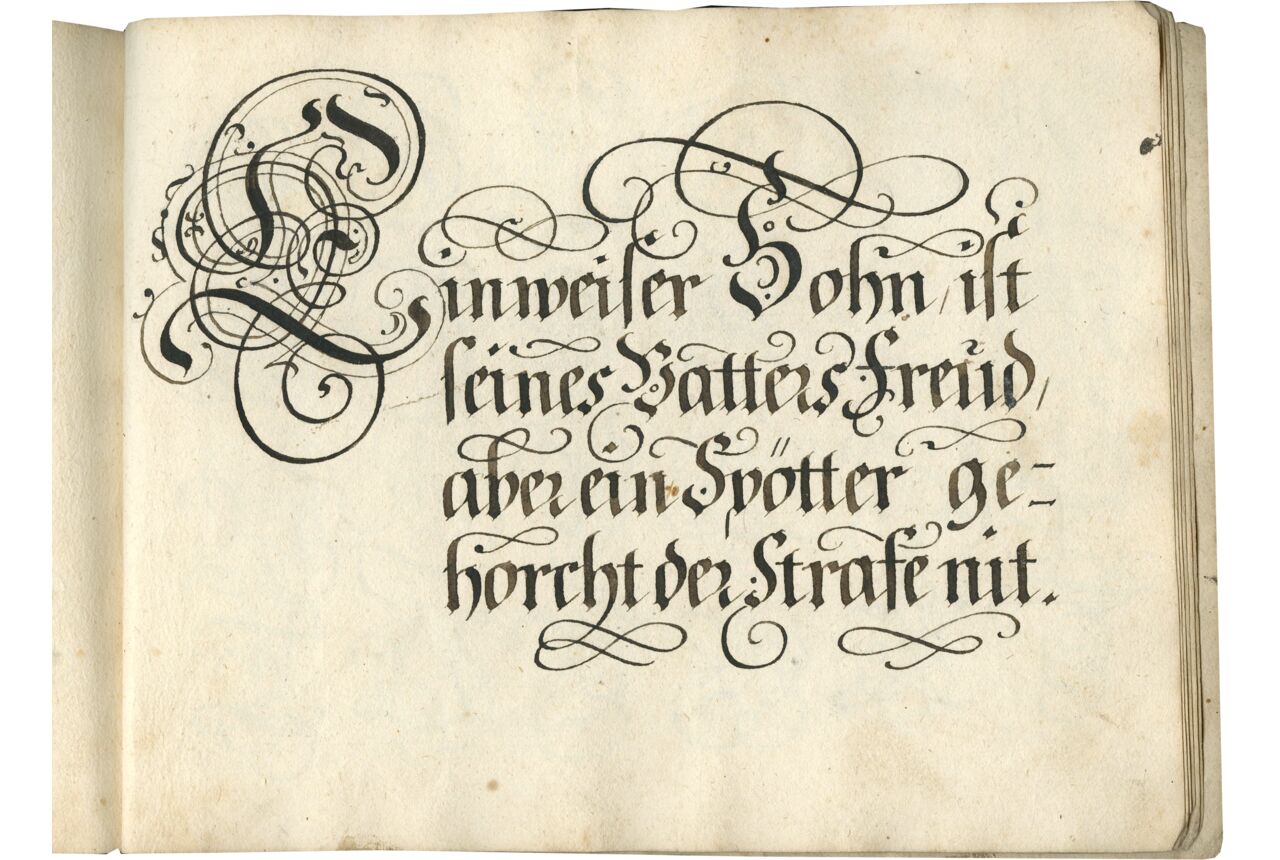 Ein weiser Sohn, ist
seines Vatters Freud,
aber ein Spötter ge=
horcht der Strafe nit.